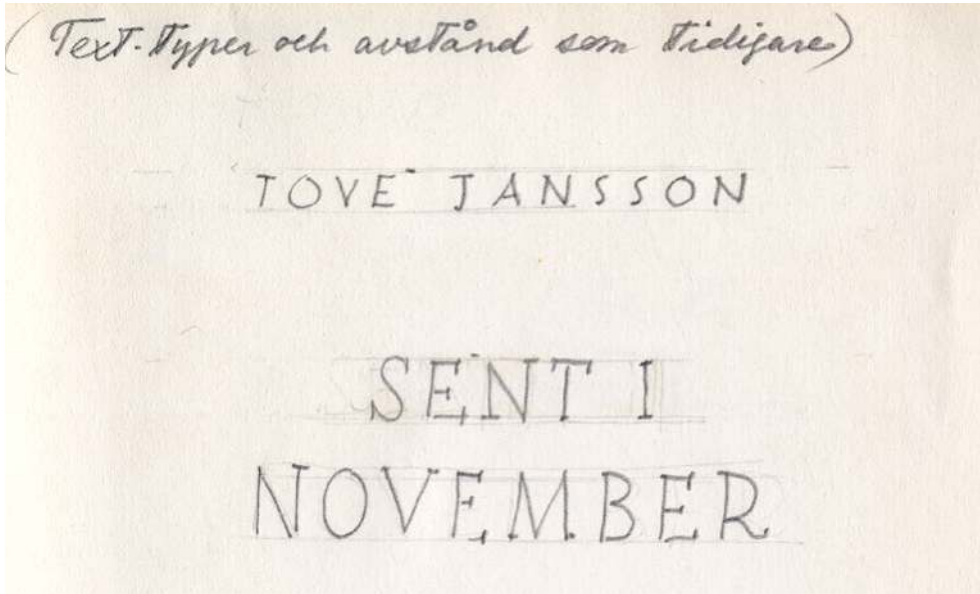 (Text-Typer och avstånd som Tidigare)
TOVE JANSSON
SENT I
NOVEMBER